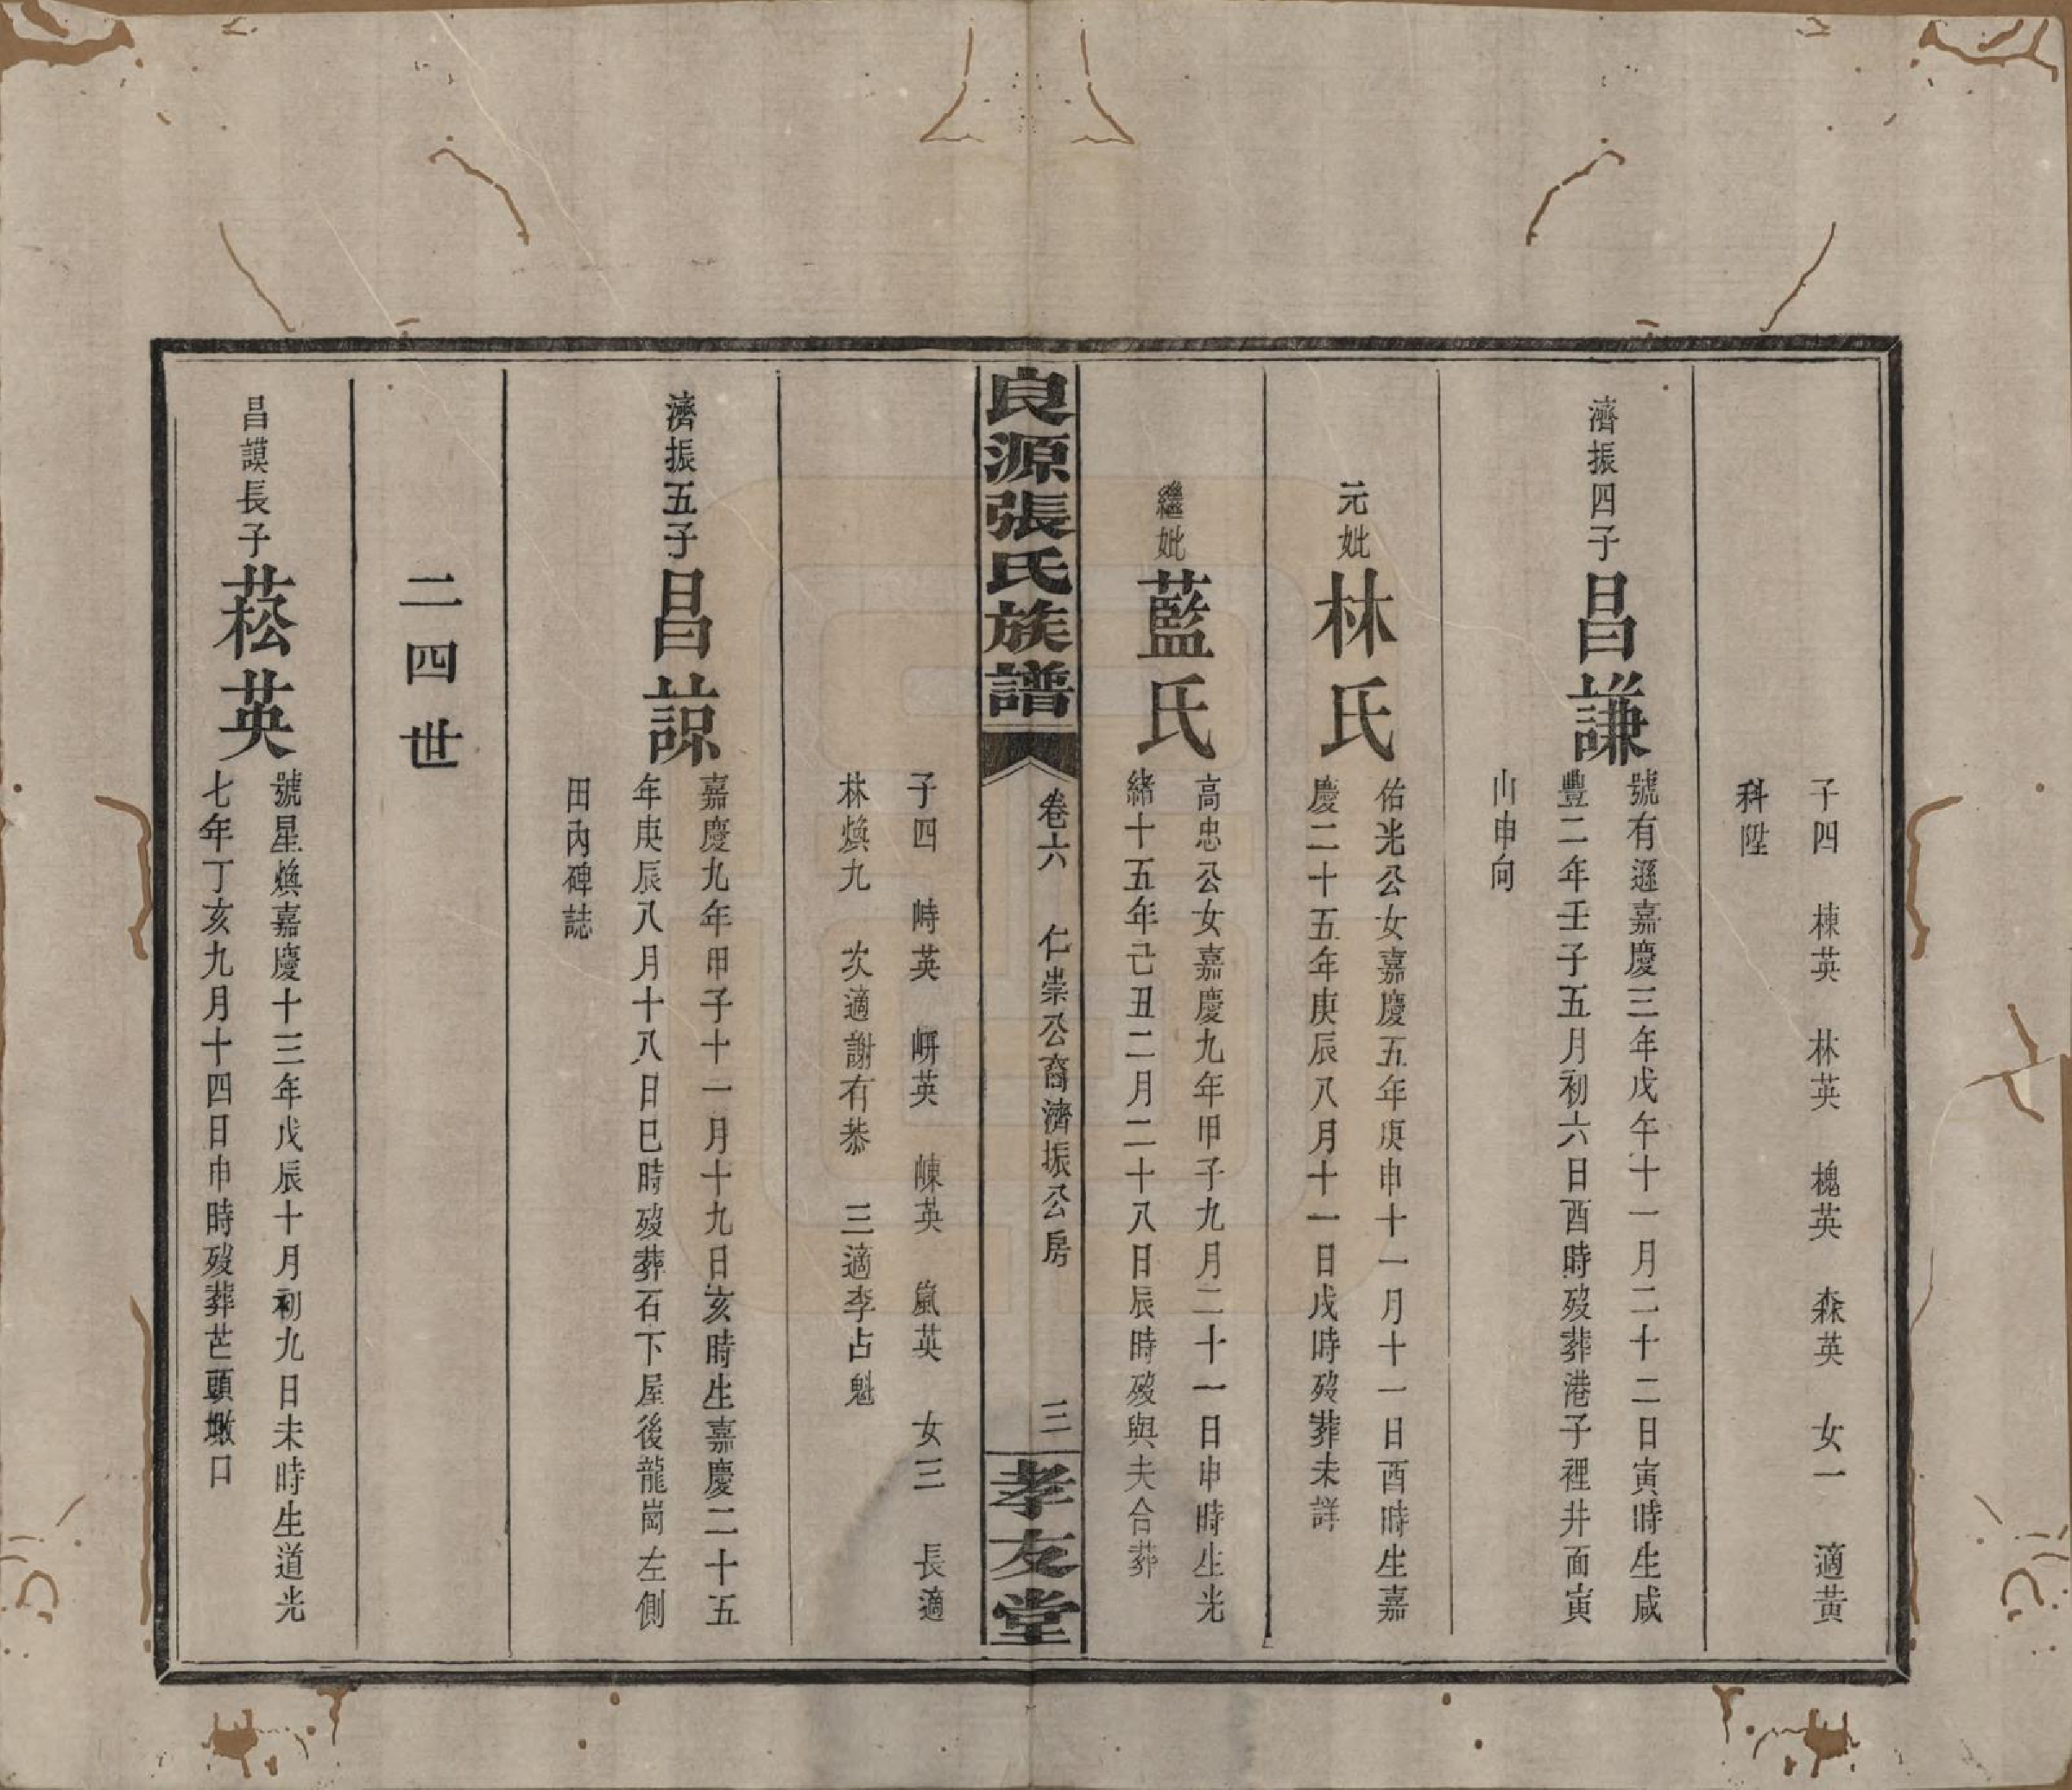 子四　棟英　林英　槐英　森英　女一　適黃
科陞
濟振四子昌謙
號有遜嘉慶三年戊午十一月二十二日寅時生咸
豐二年壬子五月初六日酉時歿葬港子裡井面寅
山申向
元妣林氏
佑光公女嘉慶五年庚申十一月十一日酉時生嘉
慶二十五年庚辰八月十一日戌時歿葬未詳
繼妣藍氏
高忠公女嘉慶九年甲子九月二十一日申時生光
緒十五年己丑二月二十八日辰時歿與夫合葬
良源張氏族譜　卷六　仁崇公裔濟振公房　三　孝友堂
子四　峙英　㟁英　崠英　嵐英　女三　長適
林煥九　次適謝有恭　三適李占魁
濟振五子昌諒
嘉慶九年甲子十一月十九日亥時生嘉慶二十五
年庚辰八月十八日巳時歿葬石下屋後龍崗左側
田內碑誌
二四世
昌謨長子菘英
號星煥嘉慶十三年戊辰十月初九日未時生道光
七年丁亥九月十四日申時歿葬芒頭墩口